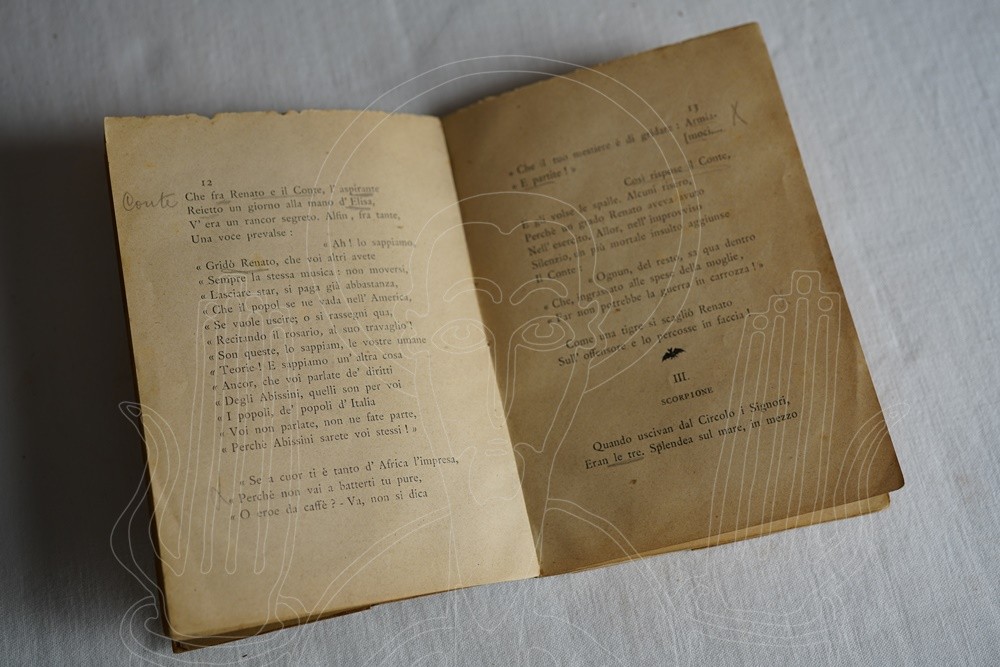 12
Conte
Che fra Renato e il Conte, l' aspirante
Reietto un giorno alla mano d' Elisa,
V' era un rancor segreto. Alfin, fra tante,
Una voce prevalse :
« Ah ! lo sappiamo,
« Gridò Renato, che voi altri avete
« Sempre la stessa musica : non moversi,
« Lasciare star, si paga già abbastanza,
« Che il popol se ne vada nell' America,
« Se vuole uscire; o si rassegni qua,
« Recitando il rosario, al suo travaglio !
« Son queste, lo sappiam, le vostre umane
« Teorie ! E sappiamo un' altra cosa
« Ancor, che voi parlate de' diritti
« Degli Abissini, quelli son per voi
« I popoli, de' popoli d' Italia
« Voi non parlate, non ne fate parte,
« Perchè Abissini sarete voi stessi ! »
« Se a cuor ti è tanto d' Africa l' impresa,
« Perchè non vai a batterti tu pure,
« O eroe da caffè ? - Va, non si dica
13
X
« Che il tuo mestiere è di gridare : Armia-
[moci....
« E partite ! »
Così rispose il Conte,
E gli volse le spalle. Alcuni risero,
Perchè un grado Renato aveva avuto
Nell' esercito. Allor, nell' improvviso
Silenzio, un più mortale insulto aggiunse
Il Conte :
« Ognun, del resto, sa qua dentro
« Che, ingrassato alle spese della moglie,
« Far non potrebbe la guerra in carrozza ! »
Come una tigre si scagliò Renato
Sull' offensore e lo percosse in faccia !
III.
SCORPIONE
Quando uscivan dal Circolo i Signori,
Eran le tre. Splendea sul mare, in mezzo